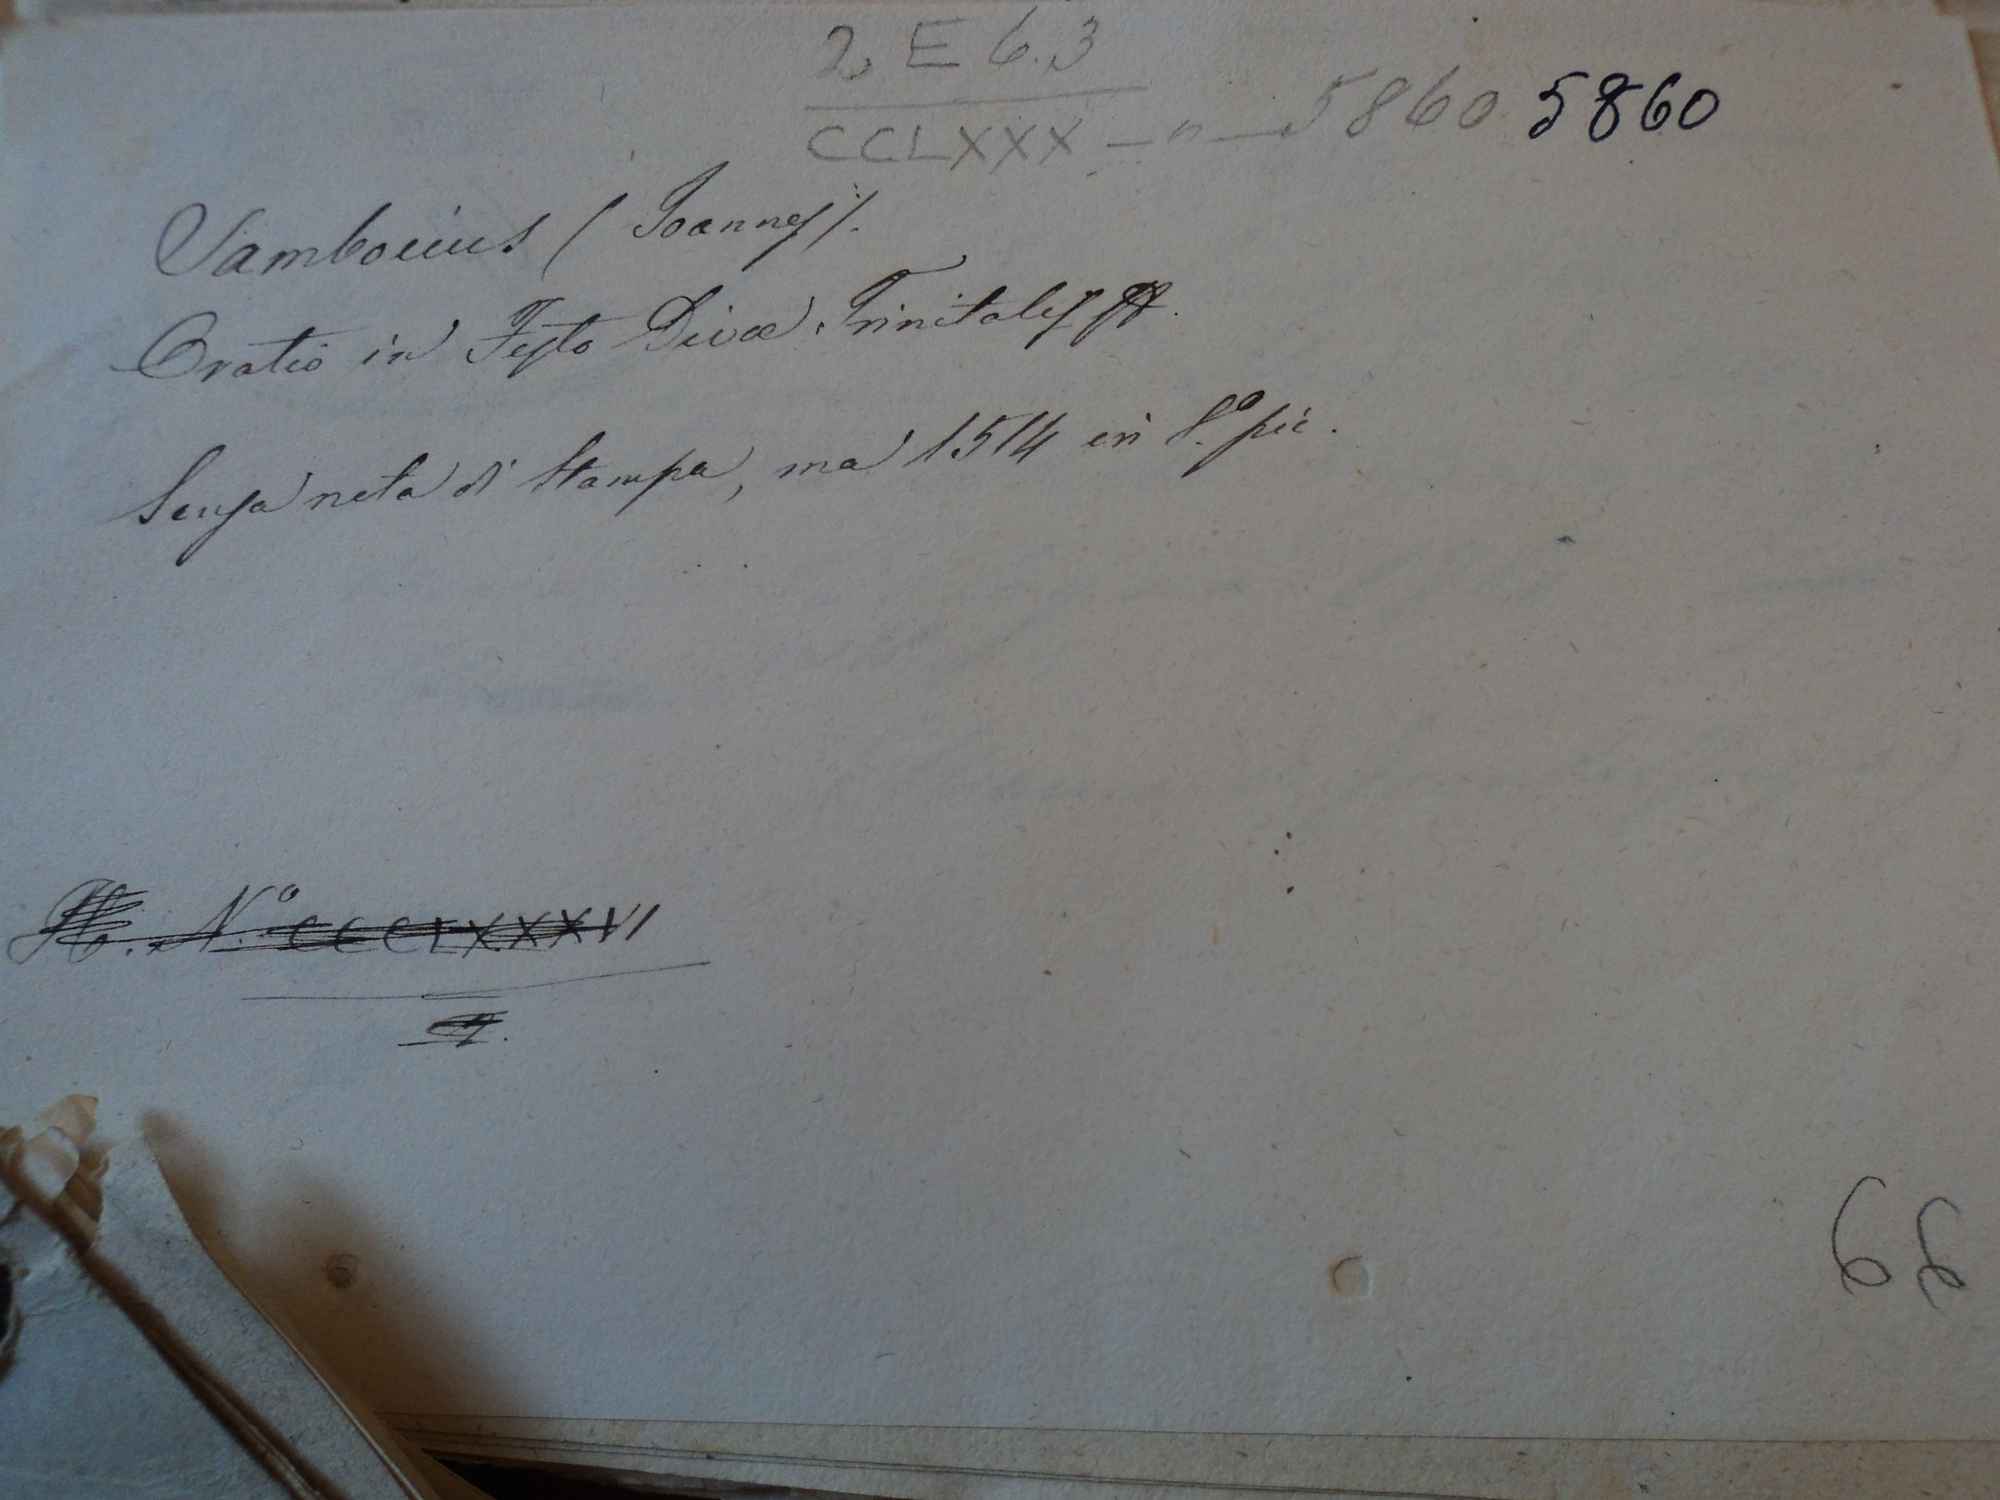 2, E 6.3
CCLXXX — " — 5860 5860
Sambocius (Joannes).
Oratio in Festo Divæ Trinitatis
Senza nota di Stampa, ma 1514 in 8.º pic.
N.º CCCLXXXVI
66